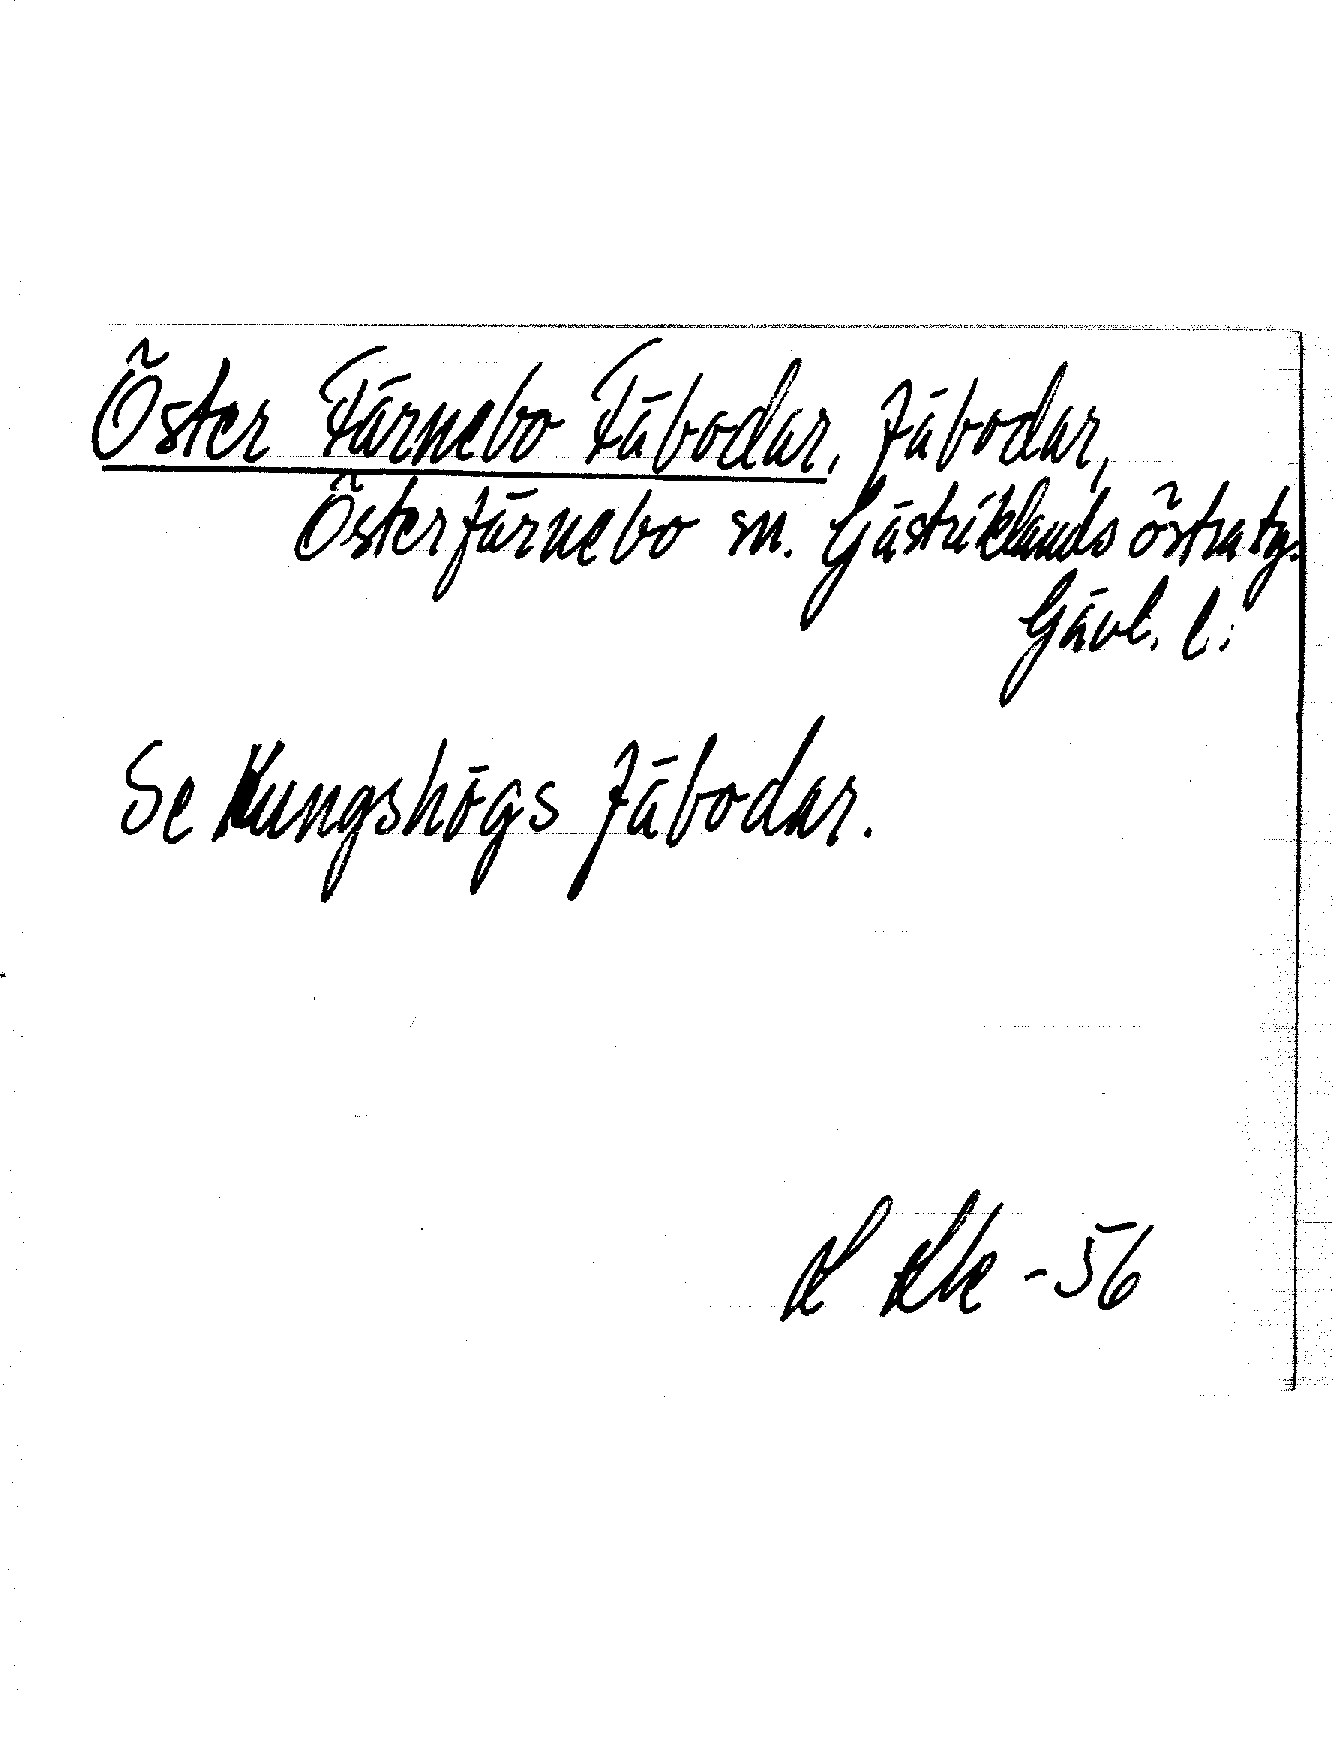 Öster Färnebo Fäbodar, fäbodar,
Österfärnebo sn. Gästriklands östra tg.
Gävl. l.
Se Kungshögs fäbodar.
- 56